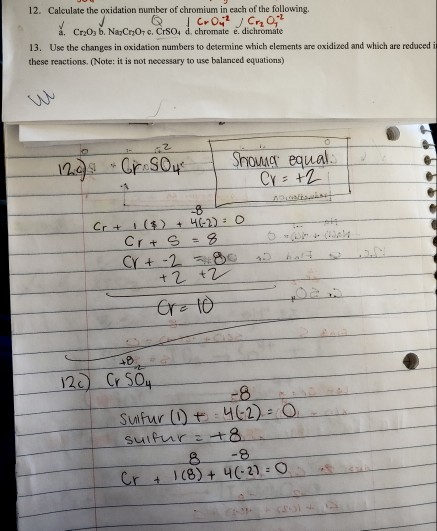 12. Calculate the oxidation number of chromium in each of the following.
CrO₄⁻² Cr₂O₇⁻²
a. Cr₂O₃ b. Na₂Cr₂O₇ c. CrSO₄ d. chromate e. dichromate
13. Use the changes in oxidation numbers to determine which elements are oxidized and which are reduced i
these reactions. (Note: it is not necessary to use balanced equations)
-2
12c) CrSO₄
Should equal
Cr = +2
-8
Cr + 1(S) + 4(-2) = 0
Cr + S = 8
Cr + -2 = 8
+2 +2
Cr = 10
+8
12c) CrSO₄
-8
Sulfur (1) + 4(-2) = 0
sulfur = +8
8 -8
Cr + 1(8) + 4(-2) = 0